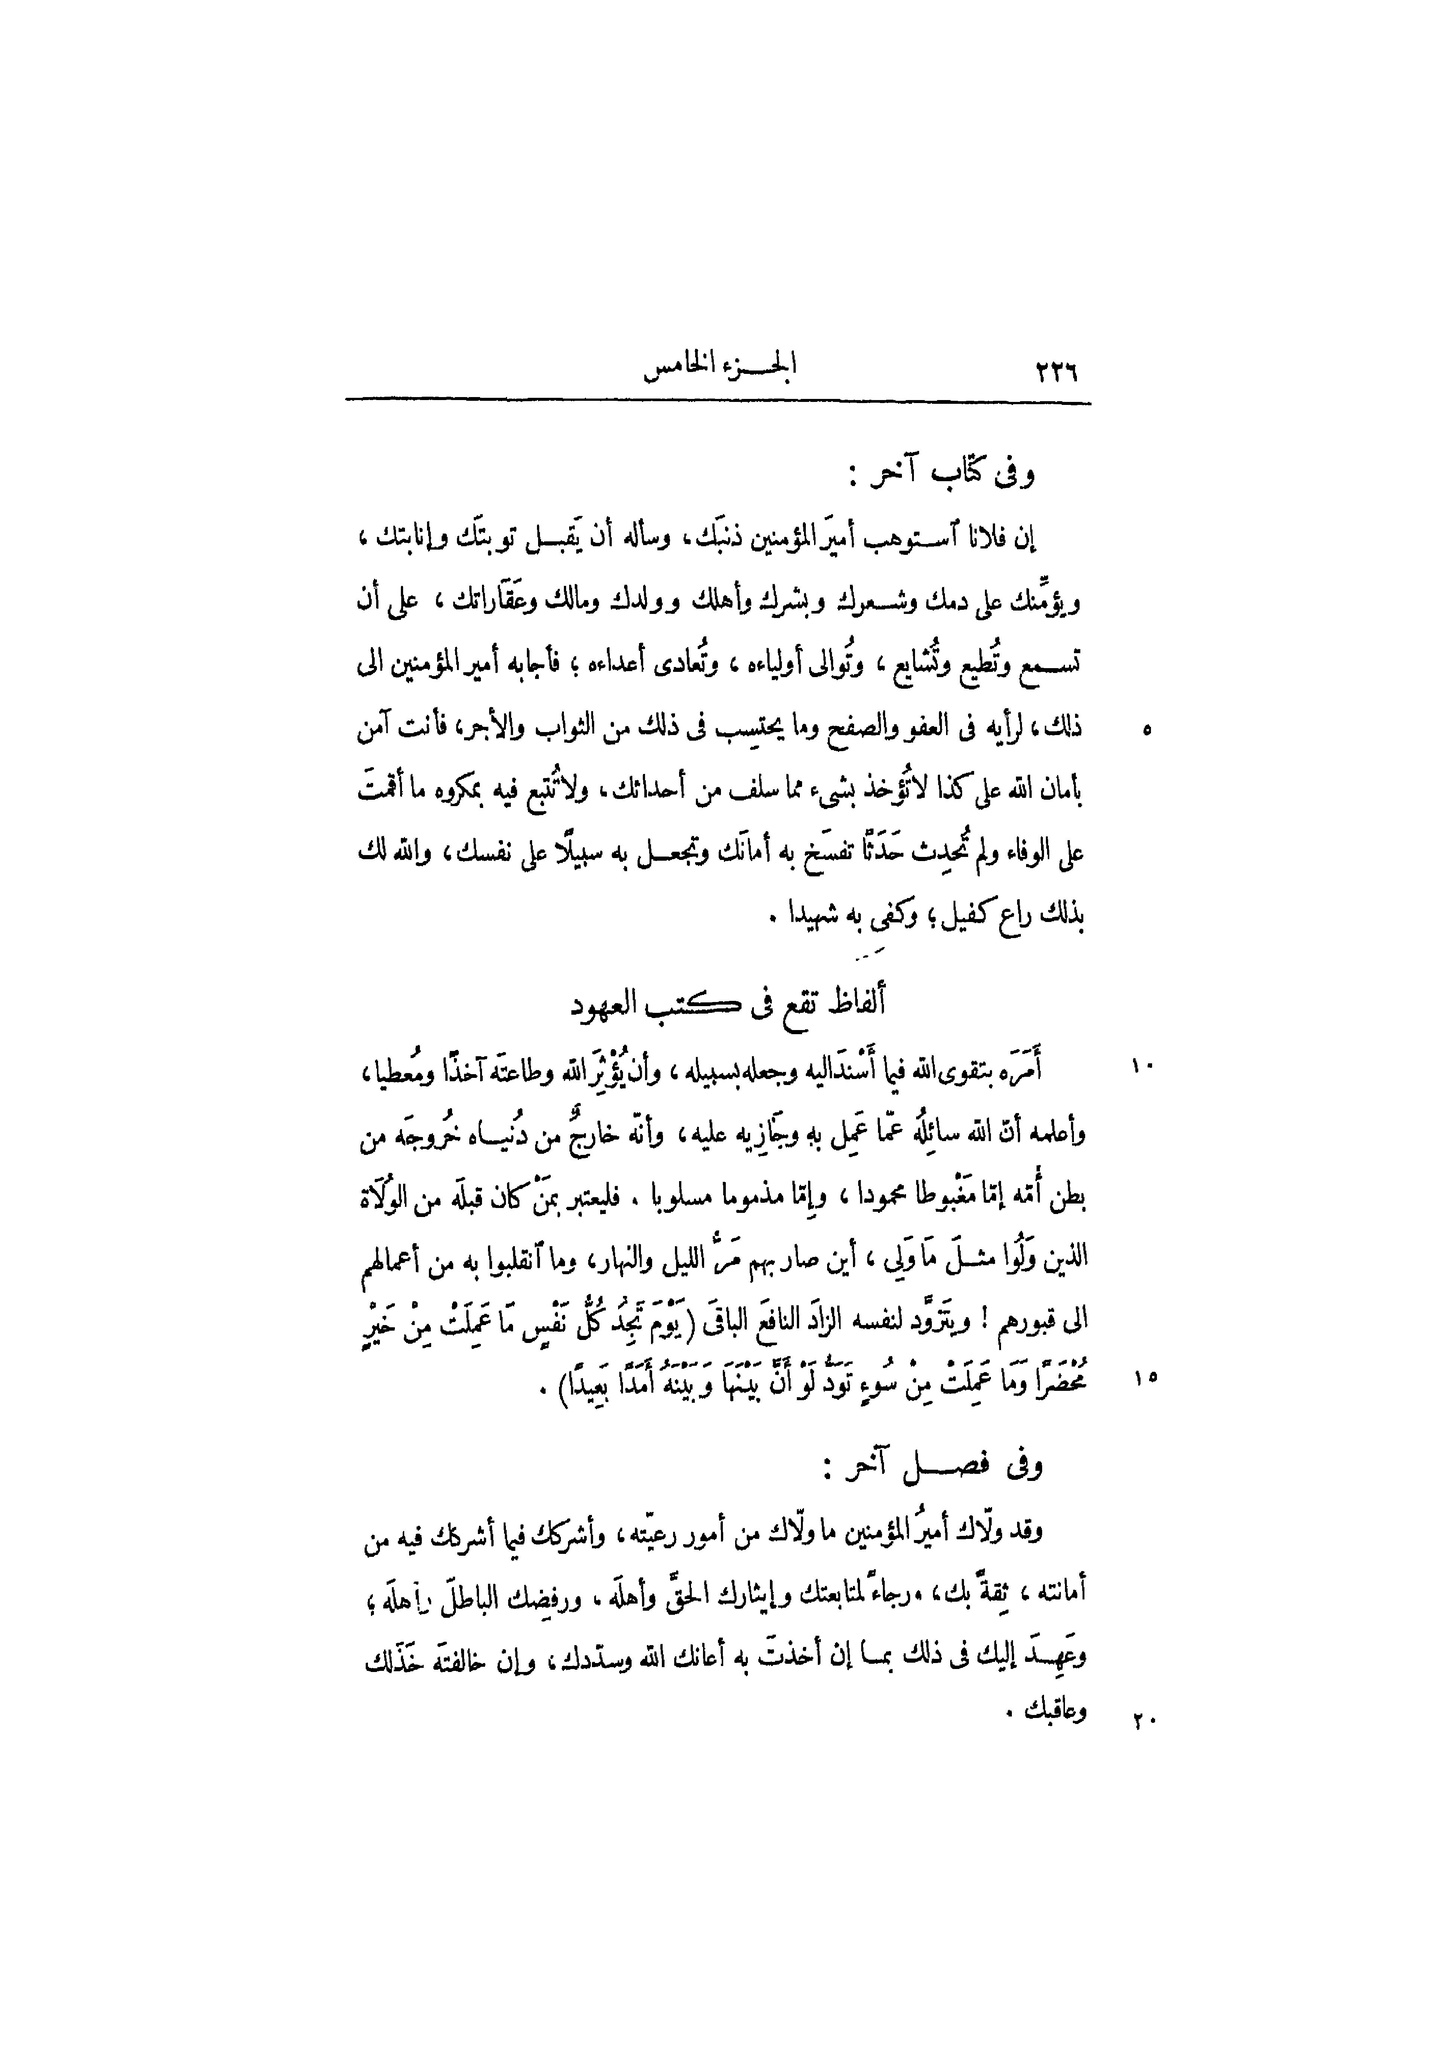 ٢٢٦
الجـزء الخامس
وفى كتاب آخر :
إن فلانا ٱستوهب أميرَ المؤمنين ذنبَك، وسأله أن يَقبل توبتَك وإنابتك ،
ويؤمِّنك على دمك وشعرك وبشرك وأهلك وولدك ومالك وعَقَاراتك ، على أن
تسمع وتُطيع وتُشايع ، وتُوالى أولياءه ، وتُعادى أعداءه ؛ فأجابه أمير المؤمنين الى
ذلك، لرأيه فى العفو والصفح وما يحتسِب فى ذلك من الثواب والأجر، فأنت آمن
٥
بأمان الله على كذا لا تُؤخذ بشىء مما سلف من أحداثك، ولا تُتبع فيه بمكروه ما أقمتَ
على الوفاء ولم تُحدِث حَدَثًا تفسَخ به أمانَك وتجعل به سبيلًا على نفسك، والله لك
بذلك راع كفيل؛ وكفى به شهيدا .
ألفاظ تقع فى كتب العهود
أَمَرَه بتقوى الله فيما أَسْنَدَ اليه وجعله بسبيله ، وأن يُؤْثِرَ الله وطاعتَه آخذًا ومُعطيا،
١٠
وأعلمه أنّ الله سائِلُه عمّا عَمِل به وجَازِيه عليه، وأنّه خارجٌ من دُنياه خُروجَه من
بطن أُمّه إمّا مَغْبوطا محمودا ، وإمّا مذموما مسلوبا . فليعتبر بمَنْ كان قبلَه من الوُلَاة
الذين وَلُوا مثلَ مَا وَلِى ، أين صار بهم مَرُّ الليل والنهار، وما ٱنقلبوا به من أعمالهم
الى قبورهم ! ويتَزوَّد لنفسه الزادَ النافعَ الباقىَ (يَوْمَ تَجِدُ كُلُّ نَفْسٍ مَّا عَمِلَتْ مِنْ خَيْرٍ
مُحْضَرًا وَمَا عَمِلَتْ مِنْ سُوءٍ تَوَدُّ لَوْ أَنَّ بَيْنَهَا وَبَيْنَهُ أَمَدًا بَعِيدًا) .
١٥
وفى فصل آخر :
وقد ولّاك أميرُ المؤمنين ما ولّاك من أمور رعيّته، وأشركك فيما أشركك فيه من
أمانته ، ثِقةً بك، ورجاءً لمتابعتك وإيثارك الحقَّ وأهلَه، ورفضِك الباطلَ وأهلَه ؛
وعَهِدَ إليك فى ذلك بما إن أخذتَ به أعانك الله وسدّدك، وإن خالفتَه خَذَلك
وعاقبك .
٢٠